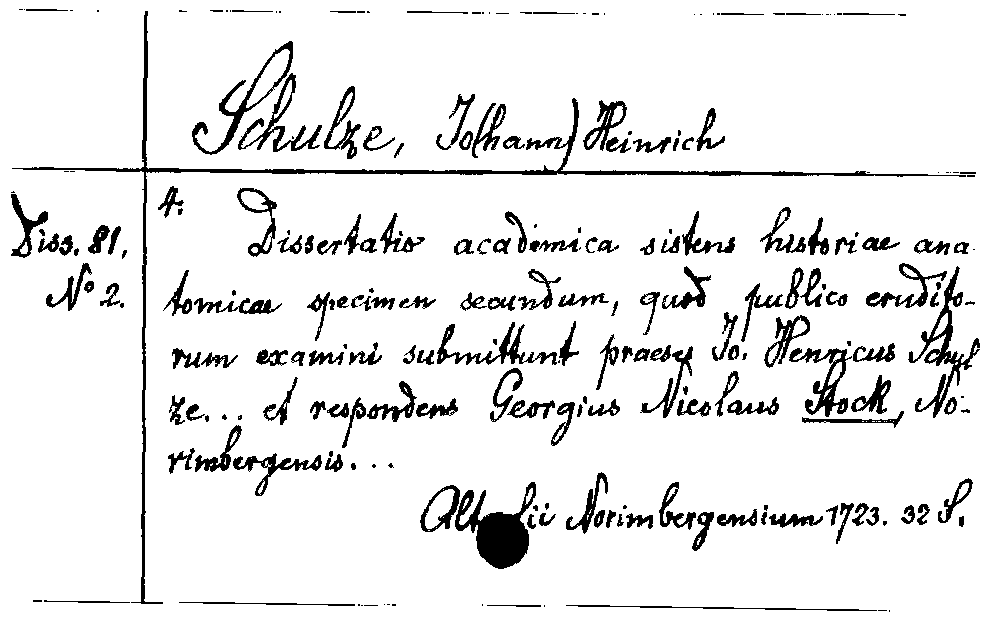 Schulze, Jo(hann) Heinrich
4.
Diss. 81.
No 2.
Dissertatio academica sistens historiae ana
tomicae specimen secundum, quod publico erudito-
rum examini submittunt praeses Jo. Henricus Schul
ze... et respondens Georgius Nicolaus Stock, No-
rimbergensis...
Norimbergensium 1723. 32 S.